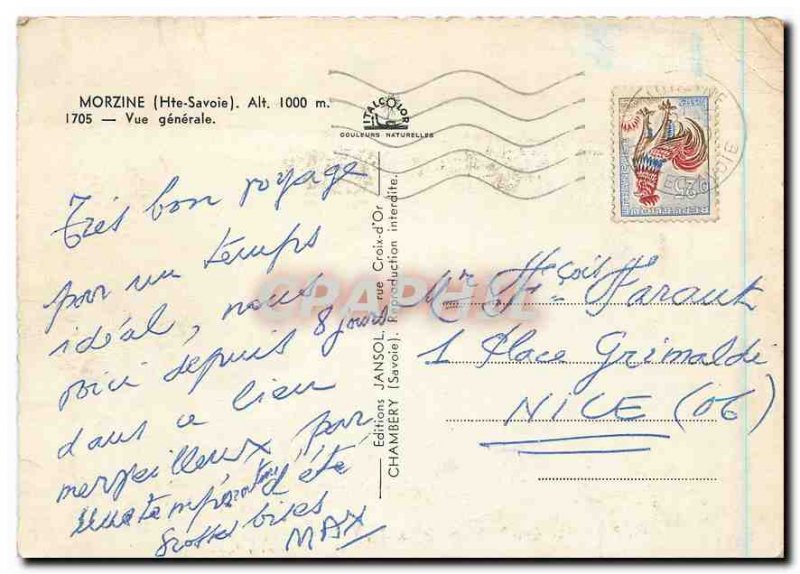 MORZINE (Hte-Savoie). Alt. 1000 m.
1705 — Vue générale.
ITALCOLOR
COULEURS NATURELLES
Très bon voyage
par un temps
idéal, nous
voici depuis 8 jours
dans ce lieu
merveilleux par
d'été
Grosses bises
MAX
Editions JANSOL, rue Croix-d'Or
CHAMBERY (Savoie). Reproduction interdite.
CPAPHIL
Mr Fçois Faraut
1 Place Grimaldi
NICE (06)
0,25